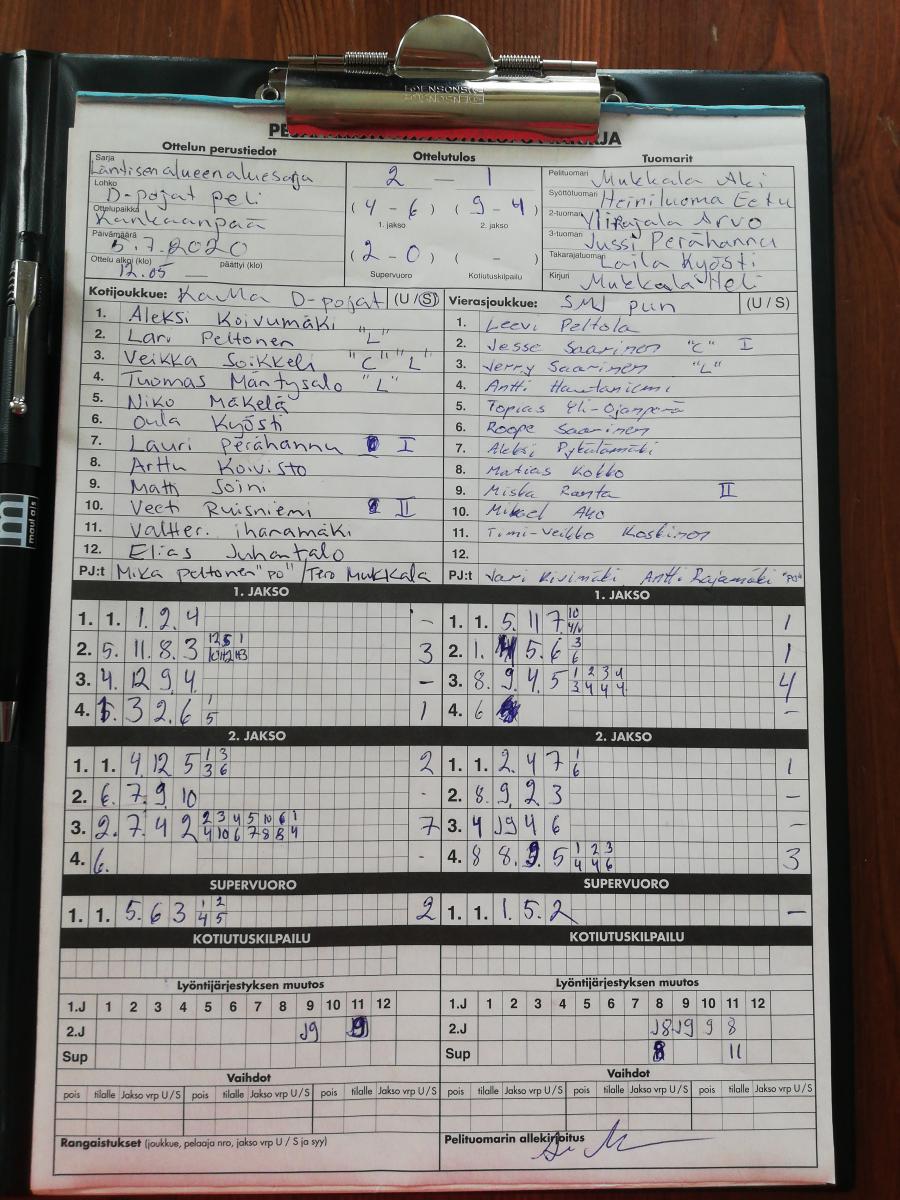 Ottelun perustiedot
Ottelutulos
Tuomarit
Sarja
Läntisen alueen aluesarja
Lohko
D-pojat peli
Ottelupaikka
Kankaanpää
Päivämäärä
5.7.2020
Ottelu alkoi (klo) päättyi (klo)
12.05 —
2 — 1
(4 - 6) (9 - 4)
1. jakso 2. jakso
(2 - 0) ( - )
Supervuoro Kotiutuskilpailu
Pelituomari Mukkala Aki
Syöttötuomari Heiniluoma Eetu
2-tuomari Ylirajala Arvo
3-tuomari Jussi Perähannu
Takarajatuomari Laila Kyösti
Kirjuri Mukkala Heli
Kotijoukkue: KaMa D-pojat (U / S)
1. Aleksi Koivumäki
2. Lari Peltonen "L"
3. Veikka Soikkeli "C" "L"
4. Tuomas Mäntysalo "L"
5. Niko Mäkelä
6. Oula Kyösti
7. Lauri Perähannu I
8. Arttu Koivisto
9. Matti Soini
10. Veeti Ruisniemi II
11. Valtteri ihanamäki
12. Elias Juhantalo
PJ:t Mika Peltonen "PO" / Tero Mukkala
Vierasjoukkue: SMJ pun (U / S)
1. Leevi Peltola
2. Jesse Saarinen "C" I
3. Jerry Saarinen "L"
4. Antti Hautaniemi
5. Topias Yli-Ojanperä
6. Roope Saarinen
7. Aleksi Pykälämäki
8. Matias Kokko
9. Miska Ranta II
10. Mikael Aho
11. Timi-Veikko Koskinen
12.
PJ:t Jari Kivimäki Antti Rajamäki "PO"
1. JAKSO
1. 1. 1. 2. 4 -
2. 5. 11. 8. 3 3
3. 4. 12 9. 4. -
4. 5. 3 2. 6 1 5 1
2. JAKSO
1. 1. 4. 12 5 1 3 3 6 2
2. 6. 7. 9. 10 -
3. 2. 7. 4 2 2 3 4 5 10 6 1 4 10 6 7 8 8 4 7
4. 6. -
SUPERVUORO
1. 1. 5. 6 3 1 2 4 5 2
KOTIUTUSKILPAILU
1. JAKSO
1. 1. 5. 11 7 1
2. 1. 5. 6 3 6 1
3. 8. 9. 4. 5 1 2 3 4 3 4 4 4 4
4. 6 -
2. JAKSO
1. 1. 2. 4 7 1 6 1
2. 8. 9. 2 3 -
3. 4 J9 4 6 -
4. 8 8. 9. 5 1 2 3 4 4 6 3
SUPERVUORO
1. 1. 1. 5. 2 -
KOTIUTUSKILPAILU
Lyöntijärjestyksen muutos
1.J 1 2 3 4 5 6 7 8 9 10 11 12
2.J J9
Sup
Lyöntijärjestyksen muutos
1.J 1 2 3 4 5 6 7 8 9 10 11 12
2.J J8 J9 9 8
Sup 8 11
Vaihdot
pois tilalle Jakso vrp U / S pois tilalle Jakso vrp U / S pois tilalle Jakso vrp U / S
Vaihdot
pois tilalle Jakso vrp U / S pois tilalle Jakso vrp U / S pois tilalle Jakso vrp U / S
Rangaistukset (joukkue, pelaaja nro, jakso vrp U / S ja syy)
Pelituomarin allekirjoitus